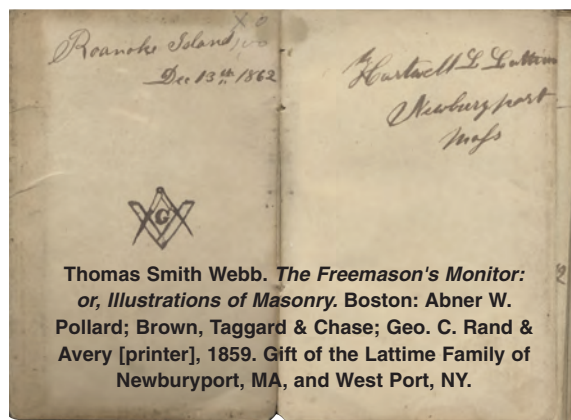 Roanoke Island,
Dec 13th 1862
Hartwell L Lattime
Newburyport
Mass
G
Thomas Smith Webb. The Freemason's Monitor:
or, Illustrations of Masonry. Boston: Abner W.
Pollard; Brown, Taggard & Chase; Geo. C. Rand &
Avery [printer], 1859. Gift of the Lattime Family of
Newburyport, MA, and West Port, NY.